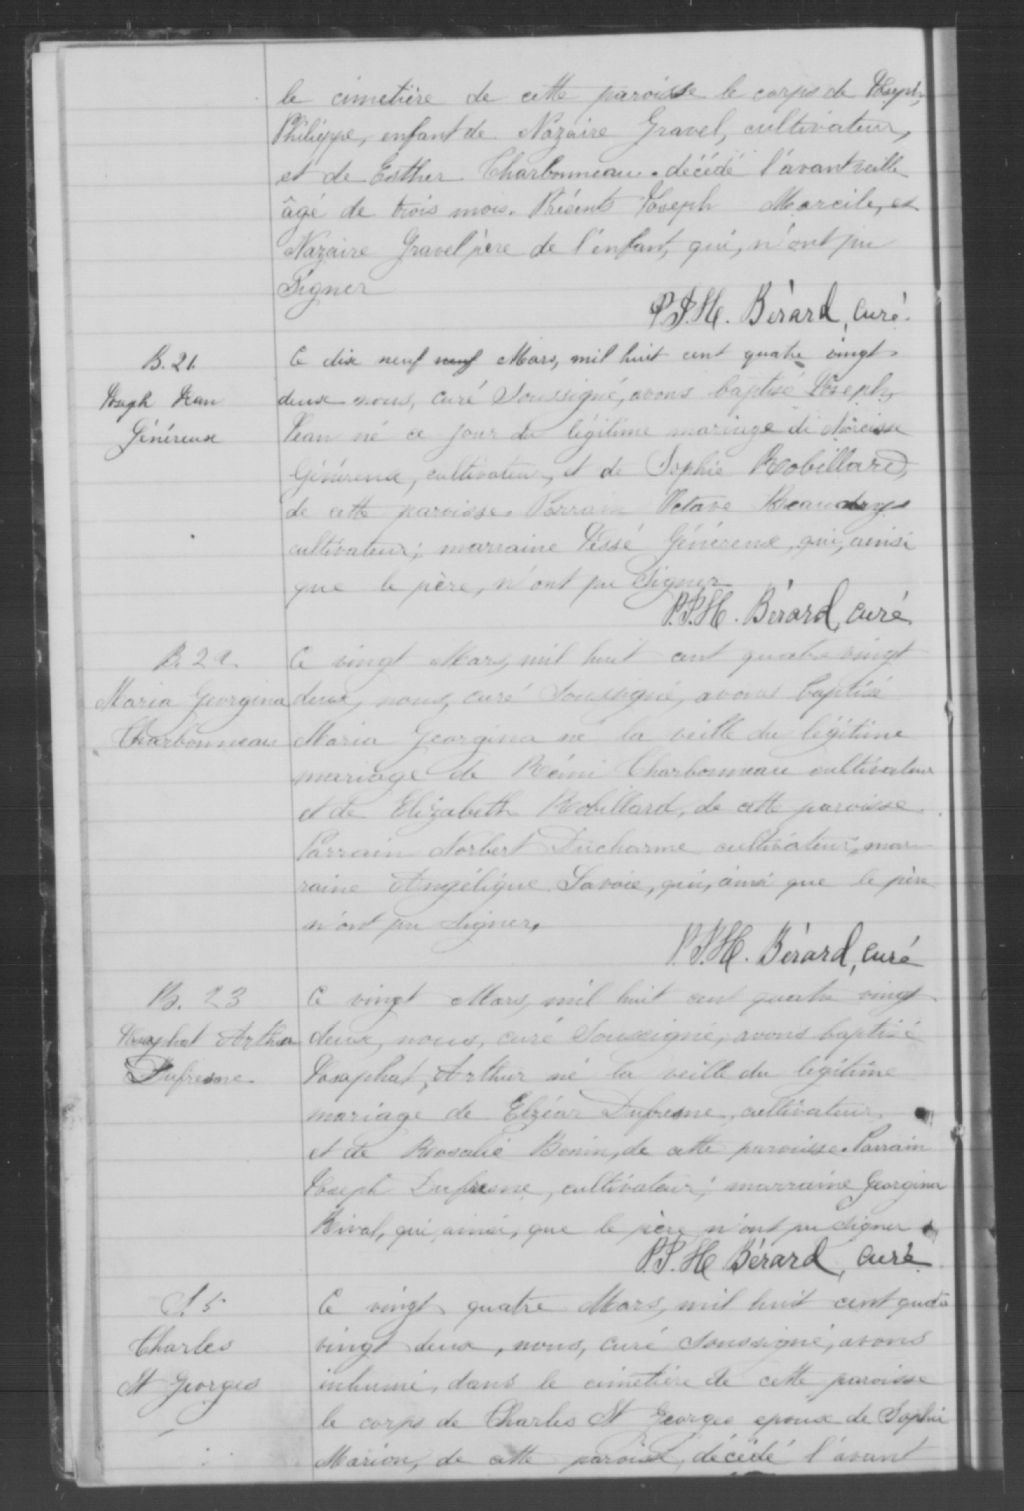 le cimetière de cette paroisse le corps de Joseph,
Philippe, enfant de Nazaire Gravel, cultivateur,
et de Esther Charbonneau. décédé l'avant veille
âgé de trois mois. Présents Joseph Marcile, et
Nazaire Gravel père de l'enfant, qui, n'ont pu
Signer
P.J.H. Bérard, Curé.
B. 21
Joseph Jean
Généreux
Ce dix neuf neuf Mars, mil huit cent quatre vingt
deux nous, curé Soussigné, avons baptisé Joseph,
Jean né ce jour du légitime mariage de Narcisse
Généreux, cultivateur, et de Sophie Robillard,
de cette paroisse. Parrain Octave Beaudry
cultivateur; marraine Généreux, qui, ainsi
que le père, n'ont pu Signer
P.J.H. Bérard, curé.
B. 22.
Maria Georgina
Charbonneau
Ce vingt Mars, mil huit cent quatre vingt
deux, nous, curé Soussigné, avons baptisé
Maria Georgina né la veille du légitime
mariage de Rémi Charbonneau cultivateur
et de Elizabeth Robillard, de cette paroisse.
Parrain Norbert Ducharme cultivateur, mar
raine Angélique Savoie, qui, ainsi que le père
n'ont pu signer.
P.J.H. Bérard, curé
B. 23
Josaphat Arthur
Dufresne
Ce vingt Mars, mil huit cent quatre vingt
deux, nous, curé Soussigné, avons baptisé
Josaphat, Arthur né la veille du légitime
mariage de Elzéar Dufresne, cultivateur,
et de Rosalie Bonin, de cette paroisse. Parrain
Joseph Dufresne, cultivateur; marraine Georgina
Rival, qui, ainsi, que le père, n'ont pu signer
P.J.H Bérard, curé
S. 5
Charles
St Georges
Ce vingt quatre Mars, mil huit cent quatre
vingt deux, nous, curé soussigné, avons
inhumé, dans le cimetière de cette paroisse
le corps de Charles St Georges epoux de Sophie
Marion, de cette paroisse, décédé l'avant